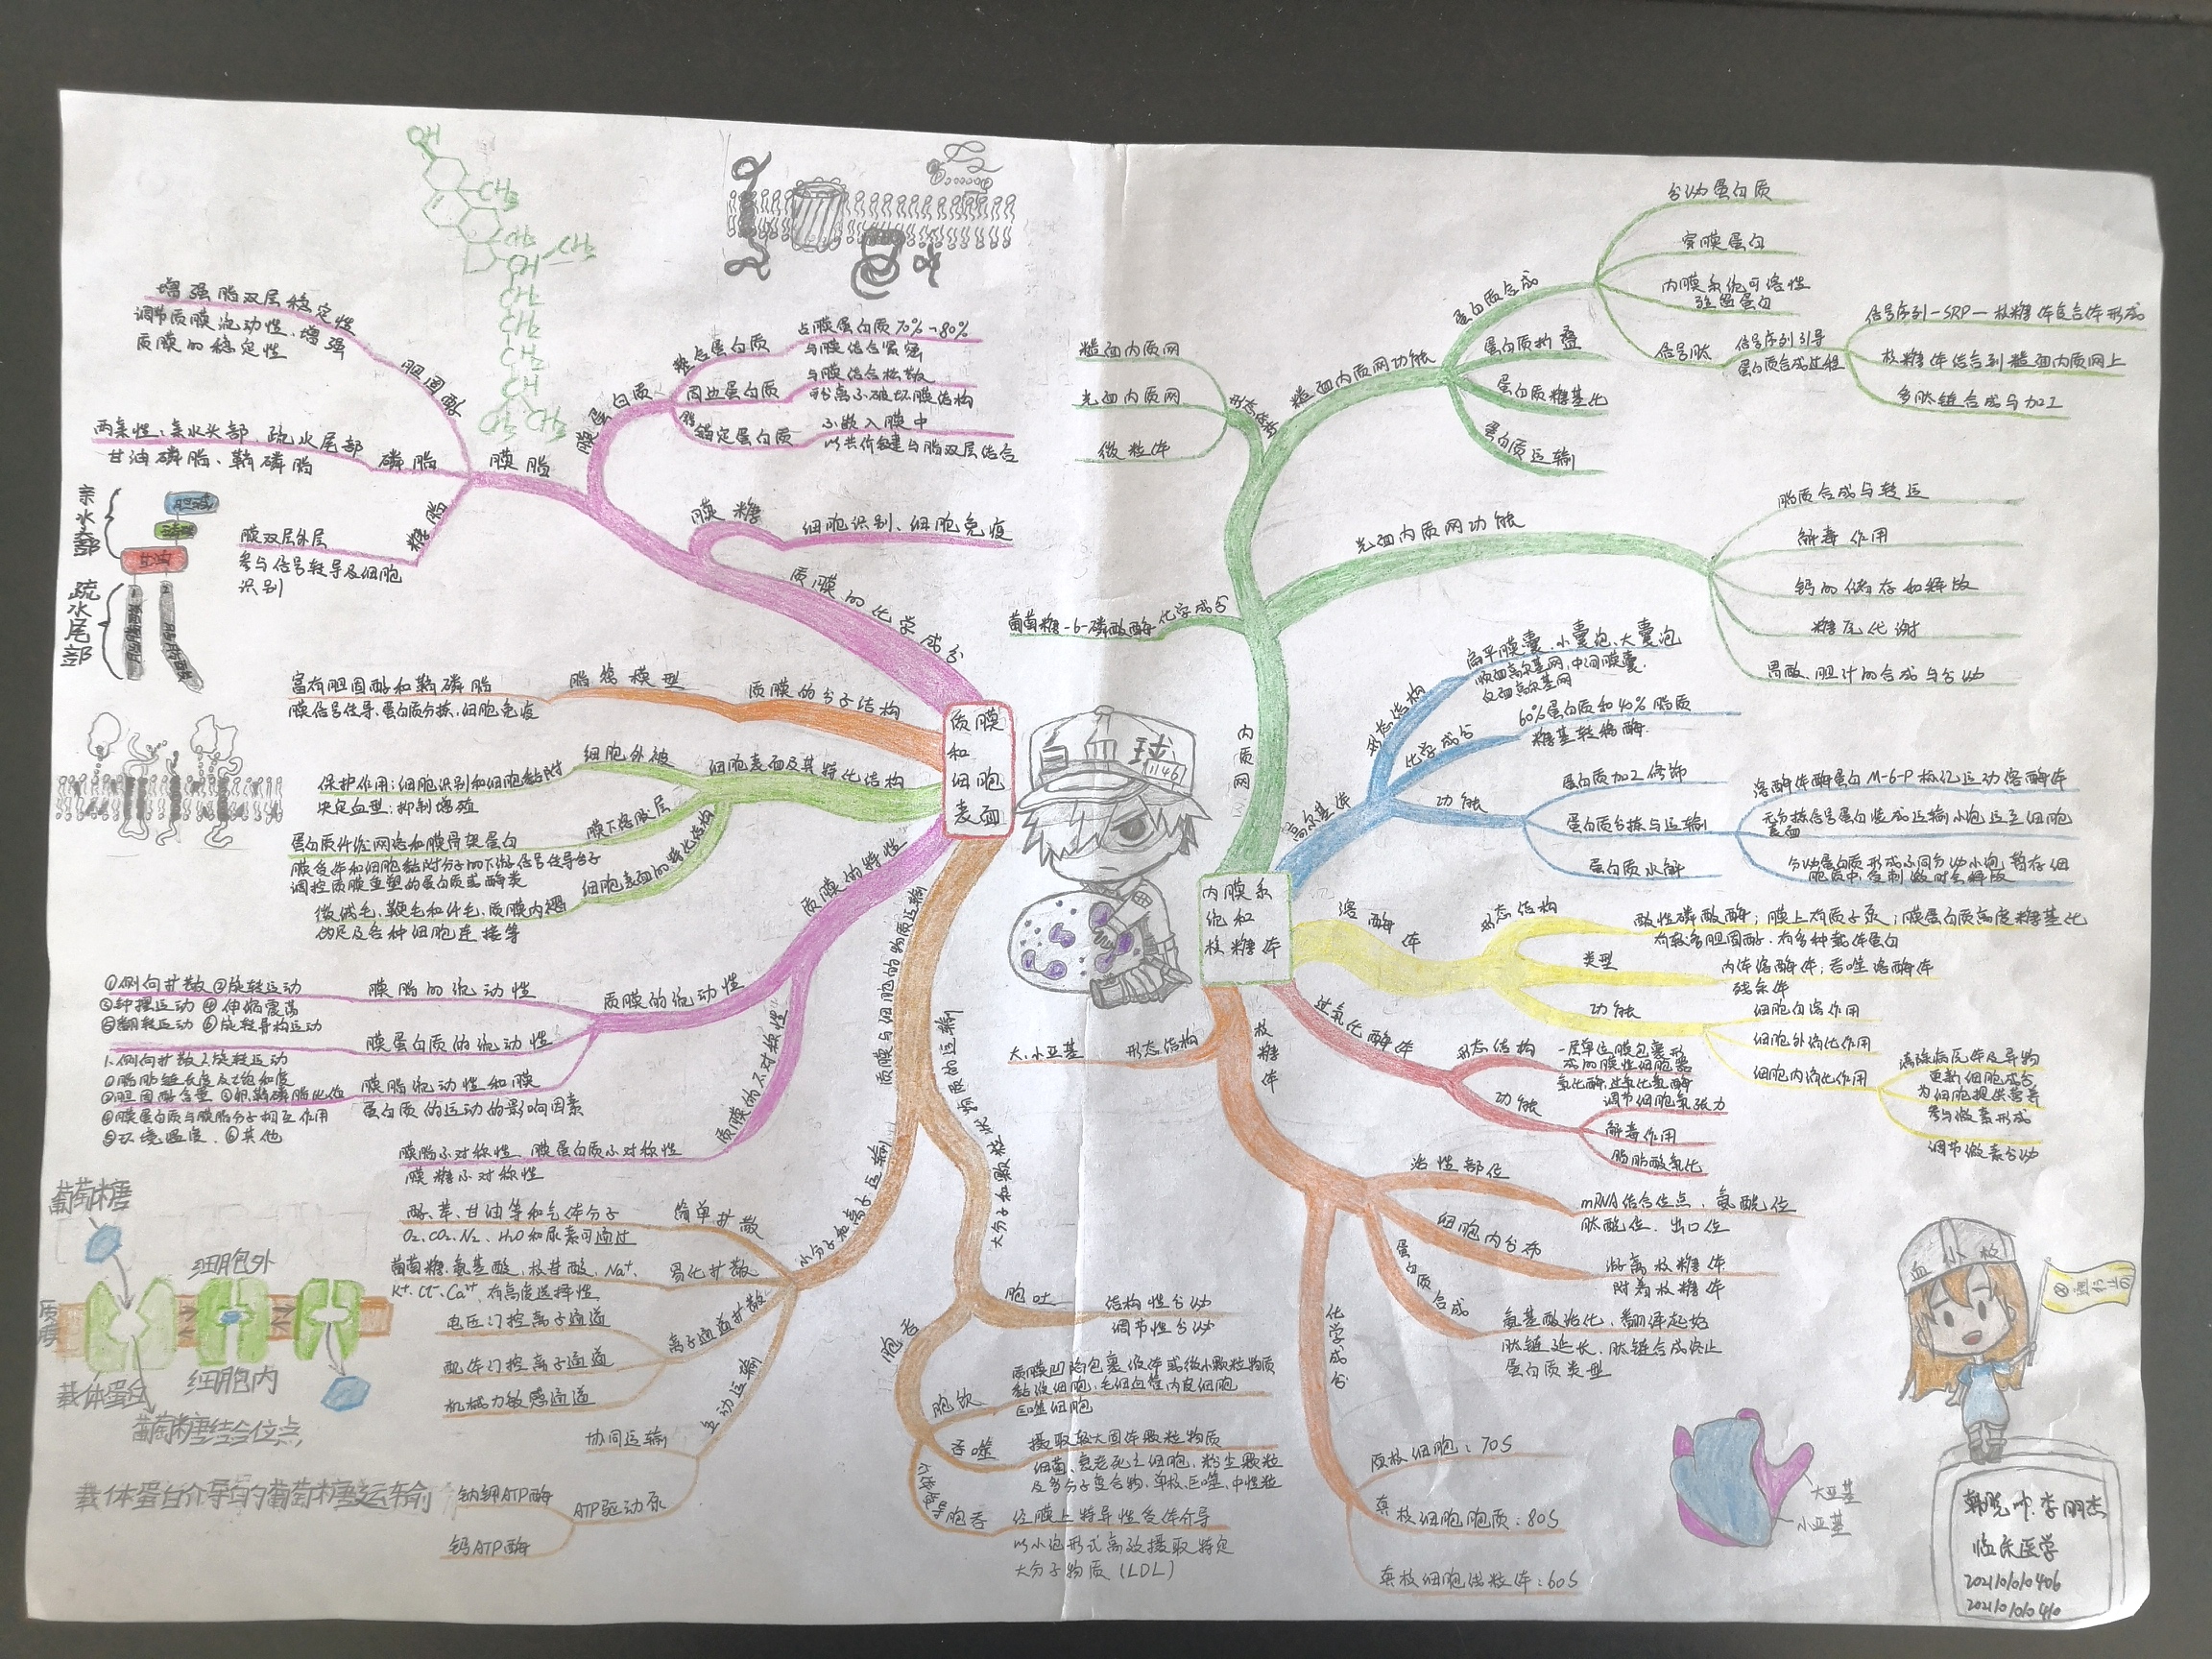 OH
CH3
CH3
CH
CH3
CH2
CH2
CH2
CH
CH3
CH3
增强脂双层稳定性
调节质膜流动性、增强
质膜的稳定性
胆固醇
两亲性:亲水头部、疏水尾部
甘油磷脂、鞘磷脂
磷脂
膜脂
糖脂
膜双层外层
参与信号转导及细胞
识别
亲水头部
疏水尾部
甘油
膜蛋白质
整合蛋白质
占膜蛋白质70%-80%
与膜结合紧密
周边蛋白质
与膜结合松散
分离不破坏膜结构
脂锚定蛋白质
不嵌入膜中
以共价键与脂双层结合
膜糖
细胞识别、细胞免疫
质膜的化学成分
质膜的分子结构
脂筏模型
富有胆固醇和鞘磷脂
膜信号传导、蛋白质分拣、细胞免疫
细胞表面及其特化结构
细胞外被
保护作用;细胞识别和细胞黏附
决定血型;抑制增殖
膜下溶胶层
蛋白质纤维网络和膜骨架蛋白
膜受体和细胞黏附分子的下游信号传导分子
调控质膜重塑的蛋白质或酶类
细胞表面的特化结构
微绒毛、鞭毛和纤毛、质膜内褶
伪足及各种细胞连接等
质膜和细胞表面
质膜的特性
质膜的流动性
膜脂的流动性
①侧向扩散 ②旋转运动
③钟摆运动 ④伸缩震荡
⑤翻转运动 ⑥旋转异构运动
膜蛋白质的流动性
1.侧向扩散2.旋转运动
膜脂流动性和膜
蛋白质的运动的影响因素
①脂肪链长度及饱和度
②胆固醇含量 ③卵、鞘磷脂比值
④膜蛋白质与膜脂分子相互作用
⑤环境温度、⑥其他
质膜的不对称性
膜脂不对称性、膜蛋白质不对称性
膜糖不对称性
质膜与细胞的物质运输
小分子和离子运输
简单扩散
醇、苯、甘油等和气体分子
O2、CO2、N2、H2O和尿素可通过
易化扩散
葡萄糖、氨基酸、核苷酸、Na+、
K+、Cl-、Ca2+、有高度选择性
离子通道扩散
电压门控离子通道
配体门控离子通道
机械力敏感通道
主动运输
协同运输
ATP驱动泵
钠钾ATP酶
钙ATP酶
大分子和颗粒状物质的运输
胞吐
结构性分泌
调节性分泌
胞吞
胞饮
质膜凹陷包裹液体或微小颗粒物质
黏液细胞、毛细血管内皮细胞
巨噬细胞
吞噬
摄取较大固体颗粒物质
细菌、衰老死亡细胞、粉尘颗粒
及多分子复合物、单核、巨噬、中性粒
胞吞
经膜上特异性受体介导
以小泡形式高效摄取特定
大分子物质(LDL)
葡萄糖
细胞外
质膜
细胞内
载体蛋白
葡萄糖结合位点
载体蛋白介导的葡萄糖运输
白血球
1146
内膜系统和核糖体
内质网
形态结构
粗面内质网
光面内质网
微粒体
化学成分
葡萄糖-6-磷酸酶
粗面内质网功能
蛋白质合成
分泌蛋白质
穿膜蛋白
内膜系统可溶性
驻留蛋白
信号肽
信号序列引导
蛋白质合成过程
信号序列-SRP-核糖体复合体形成
核糖体结合到粗面内质网上
多肽链合成与加工
蛋白质折叠
蛋白质糖基化
蛋白质运输
光面内质网功能
脂质合成与转运
解毒作用
钙的储存和释放
糖元代谢
胃酸、胆汁的合成与分泌
高尔基体
形态结构
扁平膜囊、小囊泡、大囊泡
顺面高尔基网、中间膜囊、
反面高尔基网
化学成分
60%蛋白质和40%脂质
糖基转移酶
功能
蛋白质加工修饰
蛋白质分拣与运输
溶酶体酶蛋白M-6-P标记运动溶酶体
无分拣信号蛋白装成运输小泡运至细胞
表面
分泌蛋白质形成不同分泌小泡,暂存细
胞质中,受刺激时会释放
蛋白质水解
溶酶体
形态结构
酸性磷酸酶;膜上有质子泵;膜蛋白质高度糖基化
有较多胆固醇、有多种载体蛋白
类型
内体溶酶体;吞噬溶酶体
残余体
功能
细胞自溶作用
细胞外消化作用
细胞内消化作用
清除病原体及异物
更新细胞成分
为细胞提供营养
参与激素形成
调节激素分泌
过氧化酶体
形态结构
一层单位膜包裹形
成的膜性细胞器
氧化酶、过氧化氢酶
功能
调节细胞氧张力
解毒作用
脂肪酸氧化
核糖体
形态结构
大、小亚基
活性部位
mRNA结合位点、氨酰位
肽酰位、出口位
细胞内分布
游离核糖体
附着核糖体
蛋白质合成
氨基酸活化、翻译起始
肽链延长、肽链合成终止
蛋白质类型
化学成分
原核细胞:70S
真核细胞胞质:80S
真核细胞线粒体:60S
大亚基
小亚基
血小板
韩晓帅、李朋杰
临床医学
20211010406
20211010410